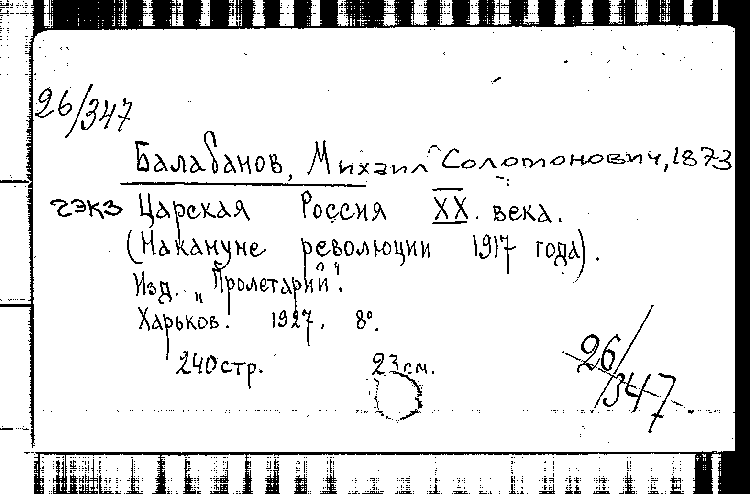 26/347
Балабанов, Михаил Соломонович, 1873
2экз Царская Россия XX. века.
(Накануне революции 1917 года).
Изд. „Пролетарий".
Харьков. 1927. 8°.
240 стр. 23 см.
26/347